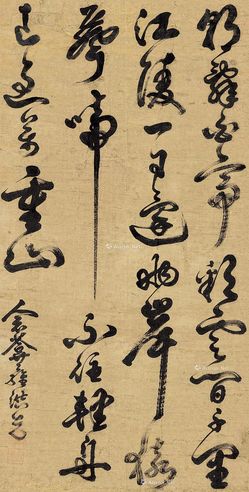 朝辭白帝彩雲間千里
江陵一日還兩岸猿
聲啼不住輕舟
已過萬重山